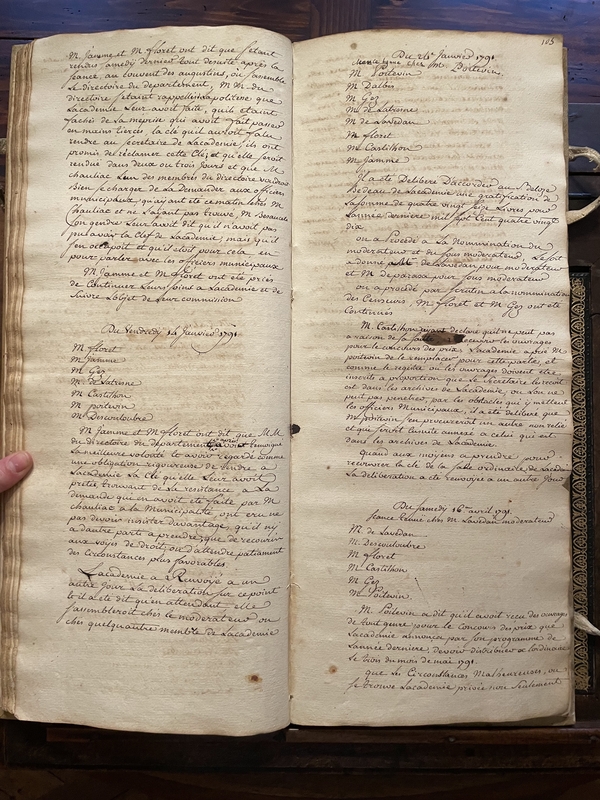 M. Jamme et M. floret ont dit que s'etant
rendus samedy dernier tout desuite après la
seance, au couvent des augustins, ou s'assemble
Le directoire du departement, M. M. du
directoire s'etant rappellés La politesse que
Lacademie Leur avoit faite, qu'ils etaient
fachés de la meprise qui avoit fait passer
en mains tierces, la clé qu'il auroit falu
rendre au secretaire de Lacademie; ils ont
promis de reclamer cette Clef, et qu'elle seroit
rendue dans deux ou trois jours et que M
chauliac L'un des membres du directoire voudroit
Bien se charger de La Demander aux officiers
municipaux, qu'ayant eté ce matin chés M.
Chauliac et ne L'ayant pas trouvé, M.
son gendre Leur avoit dit qu'il n'avoit pas
pu avoir La Clef de Lacademie, mais qu'il
s'en occupoit et qu'il etoit pour cela en
pour parler avec les officiers municipaux
M. Jamme et M. floret ont eté priés
de Continuer Leurs soins a Lacademie et de
suivre L'objet de Leur commission
Du Vendredy 14 Janvier 1791
M. floret
M. Jamme
M. Gez
M. de Latresne
M. Castilhon
M. poitevin
M. Descouloubre
M. Jamme et M. floret ont dit que M. M.
du directoire du departement
La meilleure volonté et avoir regardé comme
une obligation rigoureuse de rendre a
Lacademie La Clé qu'elle Leur avoit
pretée trouvant de La resistance a La
demande qui en avoit eté faite par M
chauliac a La Municipalité, ont cru ne
pas devoir insister davantage, qu'il n'y
a d'autre parti a prendre que de recourir
aux voyes de droit, ou d'attendre patiament
des Circonstances plus favorables.
Lacademie a Renvoyé a un
autre jour La deliberation sur ce point
et il a eté dit qu'en attendant elle
s'assembleroit chés le moderateur ou
chés quelqu'autre membre de Lacademie
105
Du 21e Janvier 1791
seance tenue chés M. Poitevin
M. Poitevin
M. Dalbis
M. Gez
M. de Latresne
M. de Lavedan
M. floret
M. Castilhon
M. Jamme
Il a eté Deliberé D'accorder au
Bedeau de Lacademie une gratification de
La somme de quatre vingt Livres pour
L'année derniere mil sept cent quatre vingt
dix
on a procedé a La Nommination du
moderateur et du sous moderateur, Le sort
a donné M. de Lavedan pour moderateur
et M. de paraza pour sous moderateur
on a procedé par scrutin a la nommination
des Censeurs, M. floret et M. Gez ont eté
Continués
M. Castilhon ayant declaré qu'il ne peut pas
a raison de sa santé recevoir les ouvrages
pour le concours des prix, Lacademie a prié M.
poitevin de le remplacer pour cette partie, et
comme le registre ou les ouvrages doivent etre
inscrits a proportion que le secretaire les recoit
est dans les archives de Lacademie, ou L'on ne
peut pas penetrer, par les obstacles qu'y mettent
les officiers Municipaux, il a eté deliberé que
M. poitevin s'en procureroit un autre non relié
et qui seroit ensuite annexé a celui qui est
dans les archives de Lacademie.
Quand aux moyens a prendre pour
recouvrer la clé de la salle ordinaire de Lacademie
La deliberation a eté renvoyée a un autre jour
Du samedy 16e avril 1791
seance tenue chés M. Lavedan moderateur
M. de Lavedan
M. Descouloubre
M. floret
M. Castilhon
M. Gez
M. Poitevin.
M. Poitevin a dit qu'il avoit recu des ouvrages
de tout genre pour le concours des prix que
Lacademie annonca par son programme de
L'année derniere, devoir distribuer a L'ordinaire
Le trois du mois de mai 1791
que Les Circonstances Malheureuses, ou
se trouve Lacademie privée non seulement